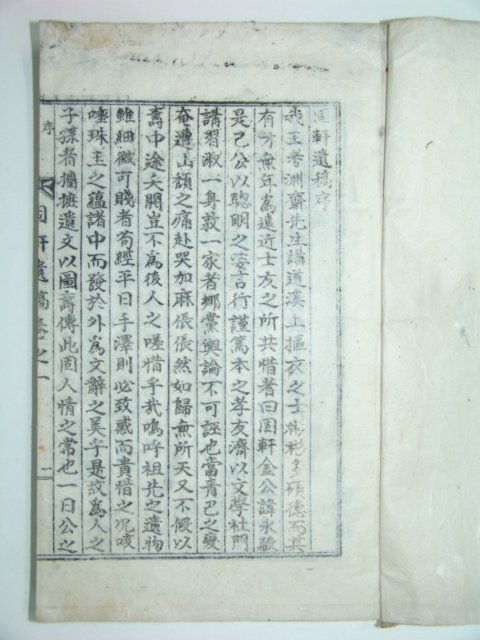 固軒遺稿序
我王考淵齋先生講道溪上摳衣之士彬彬多碩德而其
有才無年爲遠近士友之所共惜者曰固軒金公諱永
是已公以聰明之姿言行謹篤本之孝友濟以文學杜門
講習淑一身敎一家者鄕黨輿論不可誣也當靑巳之變
奄遭山頹之痛赴哭加麻倀倀然如歸無所天又不假以
壽中途夭閼豈不爲後人之嗟惜乎哉嗚呼祖先之遺物
雖細微可賤者苟經平日手澤則必致感而貴惜之况咳
唾珠玉之蘊諸中而發於外爲文辭之美乎是故爲人之
子孫者攟摭遺文以圖壽傳此固人情之常也一日公之
序
固軒遺稿卷之一
一